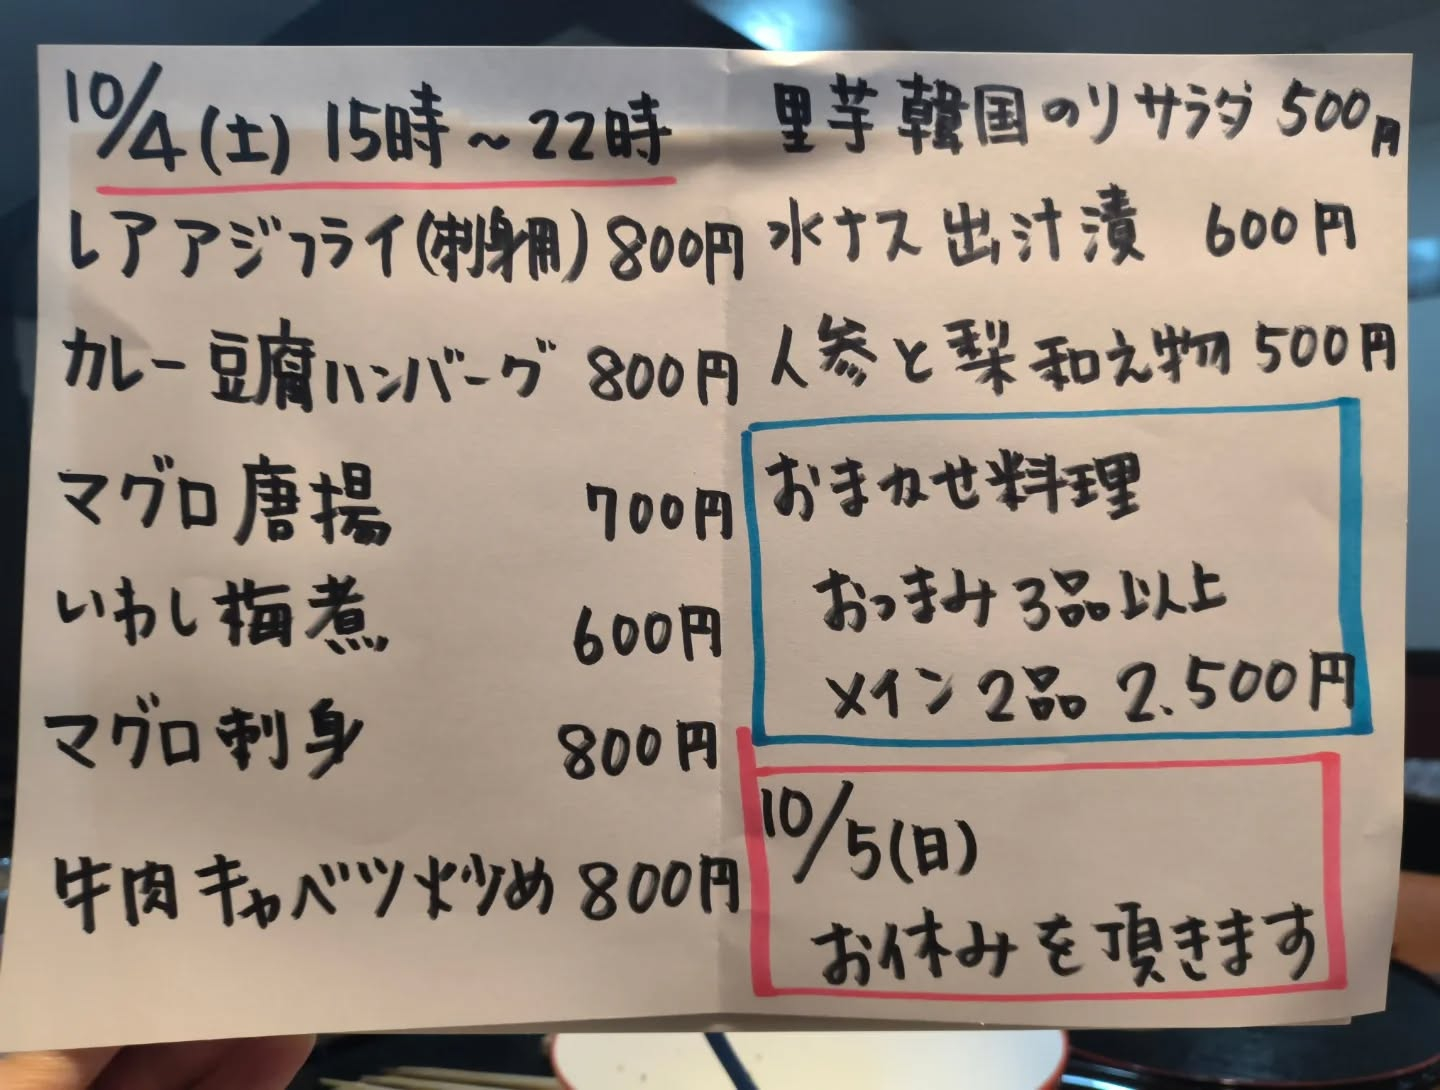 10/4(土) 15時～22時
レアアジフライ(刺身用) 800円
カレー豆腐ハンバーグ 800円
マグロ唐揚 700円
いわし梅煮 600円
マグロ刺身 800円
牛肉キャベツ炒め 800円
里芋韓国のりサラダ 500円
水ナス出汁漬 600円
人参と梨和え物 500円
おまかせ料理
おつまみ3品以上
メイン2品 2.500円
10/5(日)
お休みを頂きます